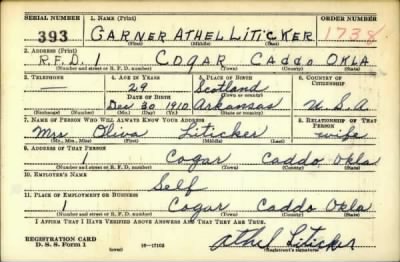 SERIAL NUMBER 1. NAME (Print) ORDER NUMBER
393 GARNER ATHEL LITICKER 1738
(First) (Middle) (Last)
2. ADDRESS (Print)
R.F.D. 1 COGAR CADDO OKLA
(Number and street or R. F. D. number) (Town) (County) (State)
3. TELEPHONE 4. AGE IN YEARS 5. PLACE OF BIRTH 6. COUNTRY OF CITIZENSHIP
— 29 Scotland
DATE OF BIRTH (Town or county)
Dec 30 1910 Arkansas U.S.A
(Exchange) (Number) (Mo.) (Day) (Yr.) (State or country)
7. NAME OF PERSON WHO WILL ALWAYS KNOW YOUR ADDRESS 8. RELATIONSHIP OF THAT PERSON
Mrs Oliva Liticker wife
(Mr., Mrs., Miss) (First) (Middle) (Last)
9. ADDRESS OF THAT PERSON
1 Cogar Caddo Okla
(Number and street or R. F. D. number) (Town) (County) (State)
10. EMPLOYER'S NAME
Self
11. PLACE OF EMPLOYMENT OR BUSINESS
1 Cogar Caddo Okla
(Number and street or R. F. D. number) (Town) (County) (State)
I AFFIRM THAT I HAVE VERIFIED ABOVE ANSWERS AND THAT THEY ARE TRUE.
REGISTRATION CARD
D. S. S. Form 1 (over) 16—17105 Athel Liticker